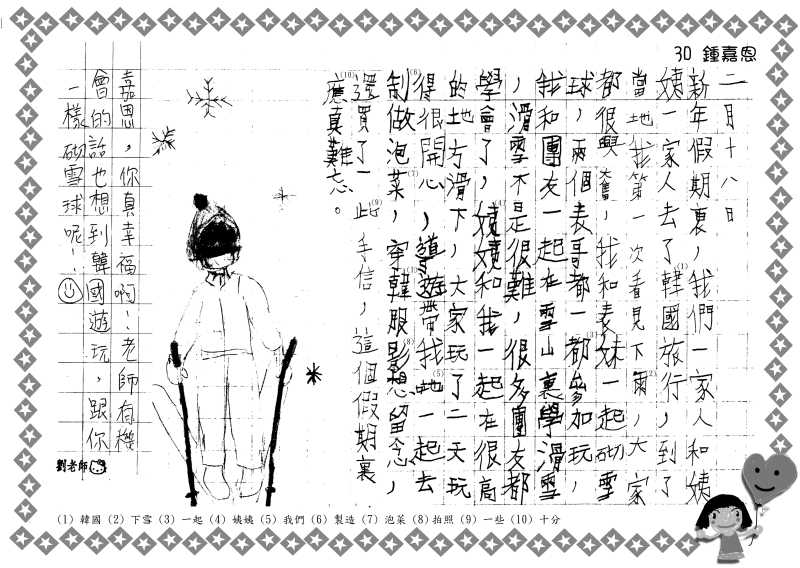 3D 鍾嘉恩
二月十八日
新年假期裏，我們一家人和姨
姨一家人去了韓國旅行，到了
當地我第一次看見下爾，大家
都很興奮，我和表妹一起砌雪
球，兩個表哥都一都參加玩，
我和團友一起在雪山裏學滑雪
，滑雪不是很難，很多團友都
學會了，姨姨和我一起在很高
的地方滑下，大家玩了二天玩
得很開心，導遊帶我地一起去
制做泡菜，穿韓服影想留念，
還買了一此手信，這個假期裏
應真難忘。
嘉恩，你真幸福啊！老師有機
會的話也想到韓國遊玩，跟你
一樣砌雪球呢！
劉老師
(1) 韓國 (2) 下雪 (3) 一起 (4) 姨姨 (5) 我們 (6) 製造 (7) 泡菜 (8) 拍照 (9) 一些 (10) 十分